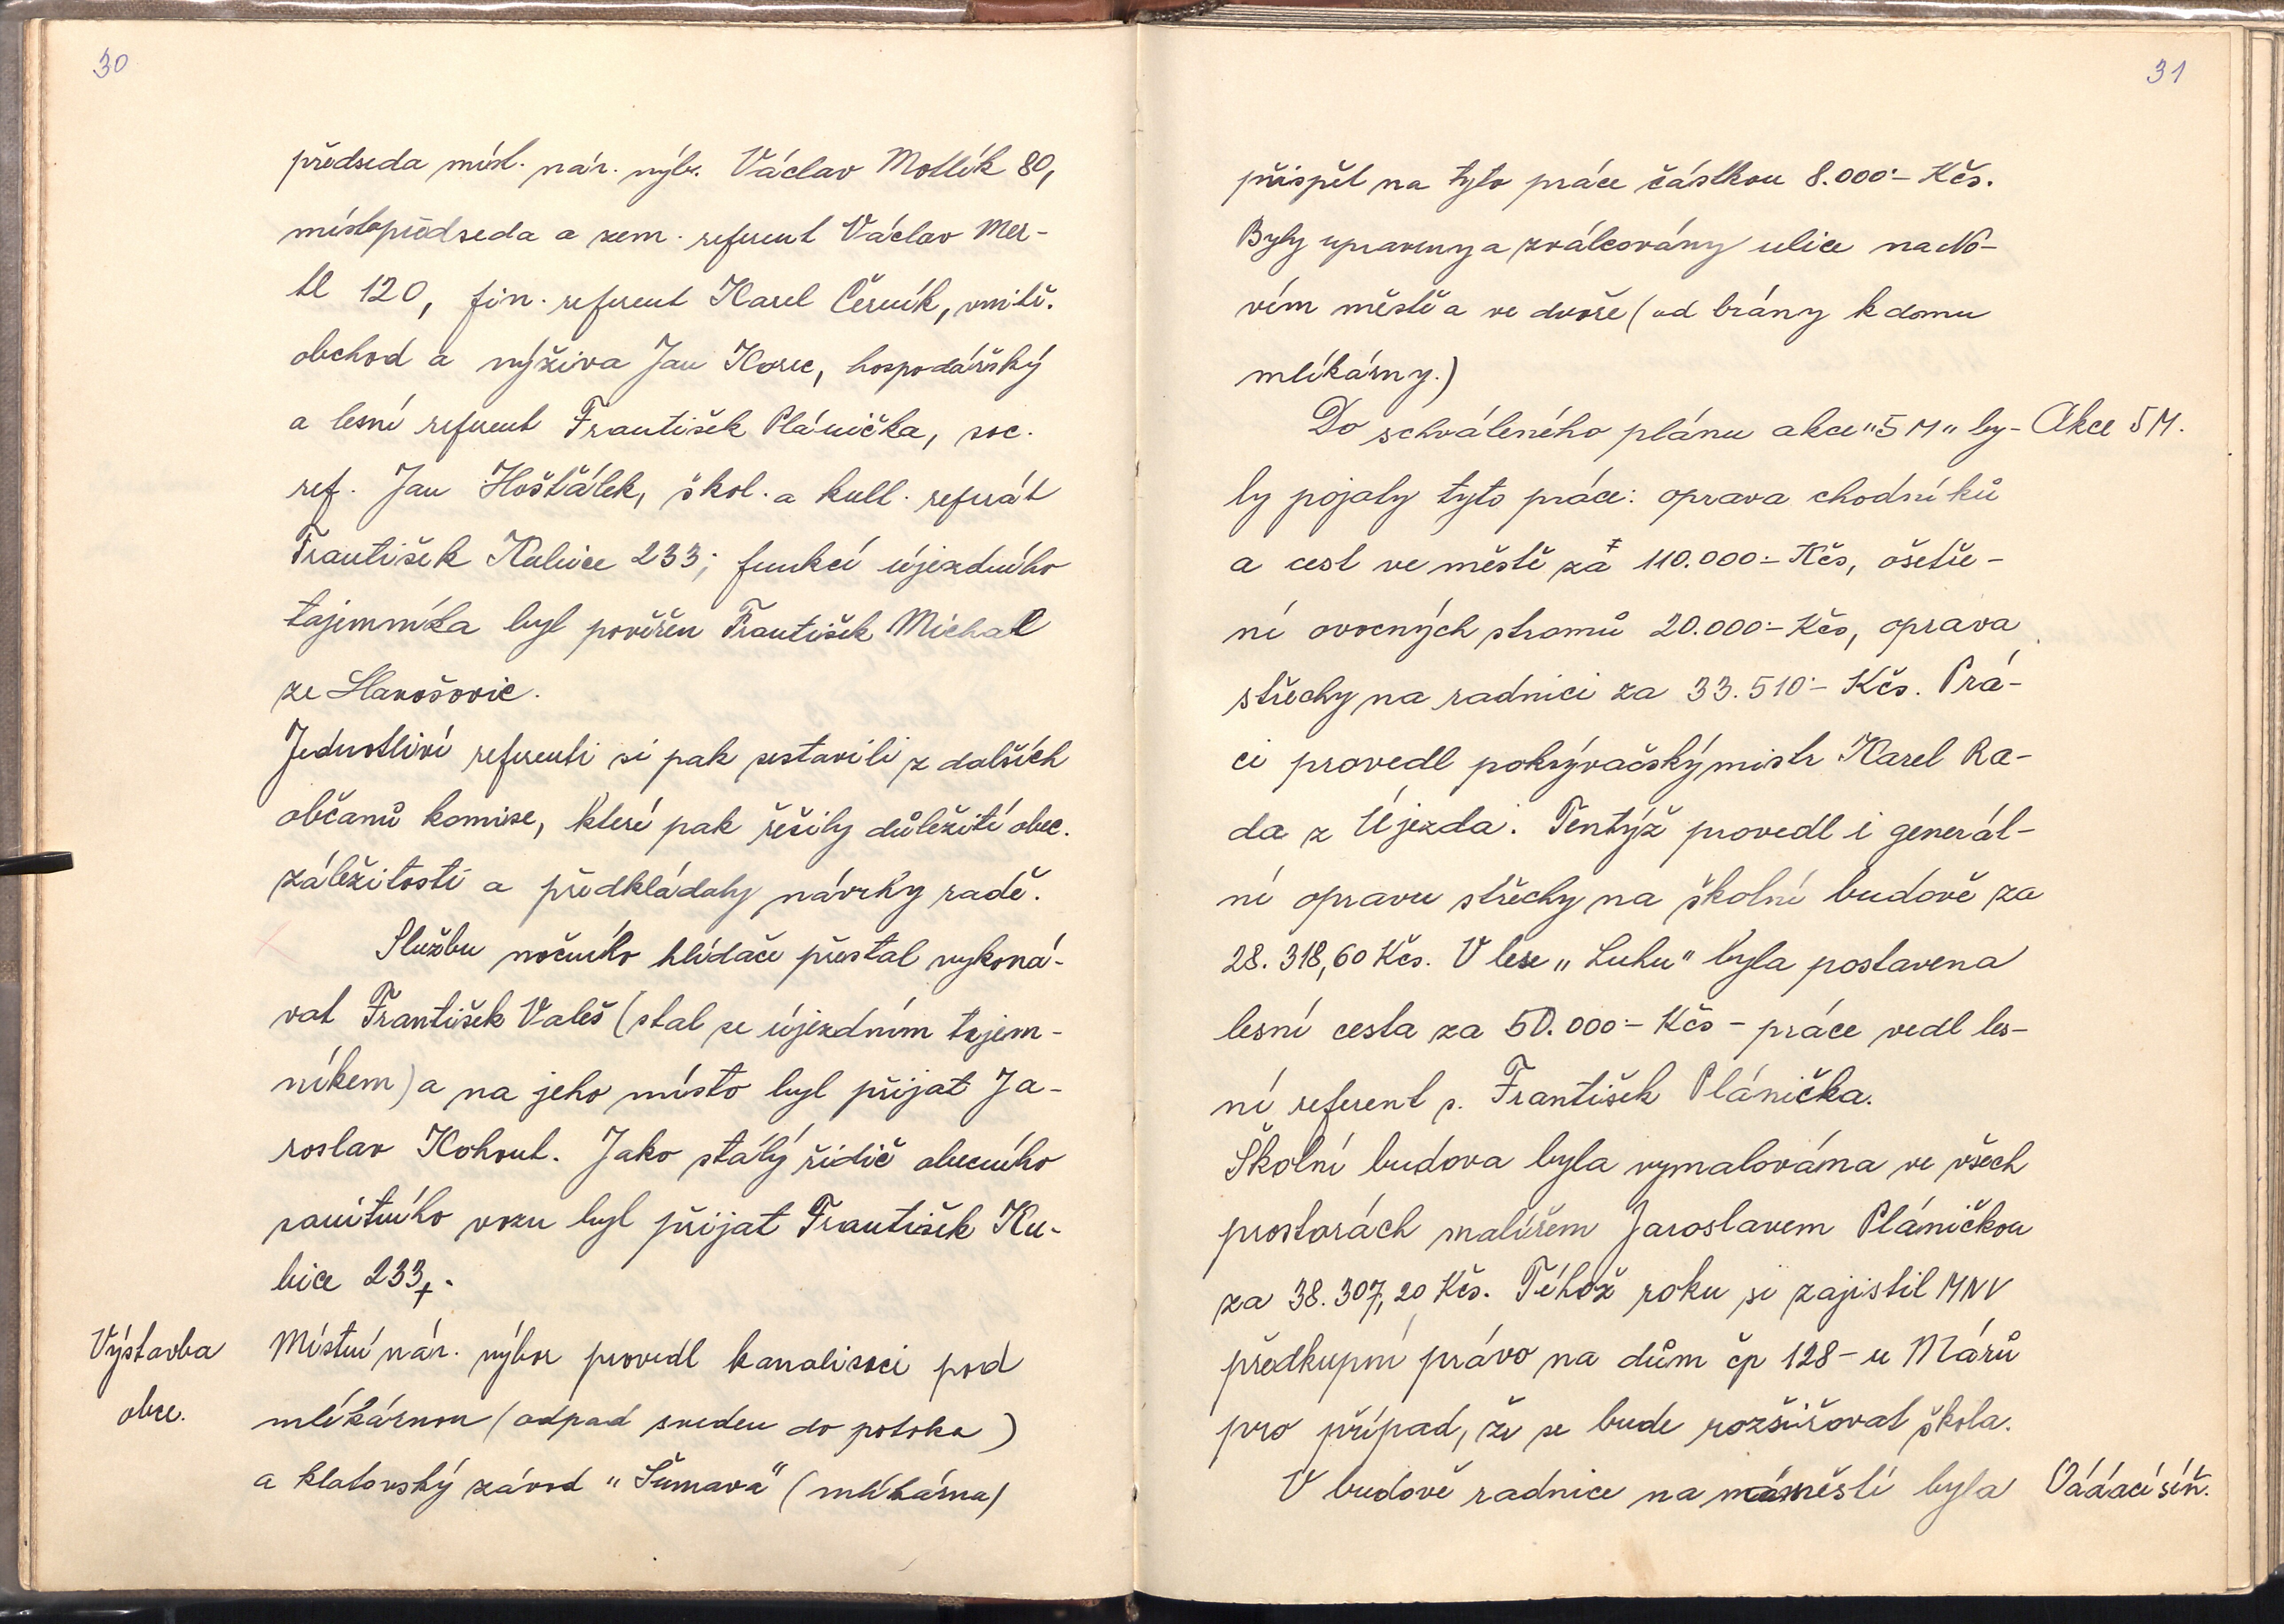 30
předseda míst. nár. výb. Václav Motlík 80,
místopředseda a zem. referent Václav Mer-
tl 120, fin. referent Karel Černík, vnitř.
obchod a výživa Jan Korec, hospodářský
a lesní referent František Plánička, soc.
ref. Jan Hošťálek, škol. a kult. referát
František Kubice 233; funkcí újezdního
tajemníka byl pověřen František Michal
ze Slavošovic.
Jednotliví referenti si pak sestavili z dalších
občanů komise, které pak řešily důležité obec.
záležitosti a předkládaly návrhy radě.
Službu nočního hlídače přestal vykoná-
vat František Valeš (stal se újezdním tajem-
níkem) a na jeho místo byl přijat Ja-
roslav Kohout. Jako stálý řidič obecního
sanitního vozu byl přijat František Ku-
bice 233+.
Výstavba obce.
Místní nár. výbor provedl kanalisaci pod
mlékárnou (odpad sveden do potoka)
a klatovský závod "Šumava" (mlékárna)
31
přispěl na tyto práce částkou 8.000·- Kčs.
Byly upraveny a zválcovány ulice na No-
vém městě a ve dvoře (od brány k domu
mlékárny.)
Do schváleného plánu akce "5 M" by- Akce 5M.
ly pojaty tyto práce: oprava chodníků
a cest ve městě za 110.000·- Kčs, ošetře-
ní ovocných stromů 20.000·- Kčs, oprava
střechy na radnici za 33.510·- Kčs. Prá-
ci provedl pokrývačský mistr Karel Ra-
da z Újezda. Tentýž provedl i generál-
ní opravu střechy na školní budově za
28.318,60 Kčs. V lese "Luhu" byla postavena
lesní cesta za 50.000·- Kčs - práce vedl les-
ní referent s. František Plánička.
Školní budova byla vymalována ve všech
prostorách malířem Jaroslavem Pláničkou
za 38.307,20 Kčs. Téhož roku si zajistil MNV
předkupní právo na dům čp 128 - u Márů
pro případ, že se bude rozšiřovat škola.
V budově radnice na náměstí byla síň.